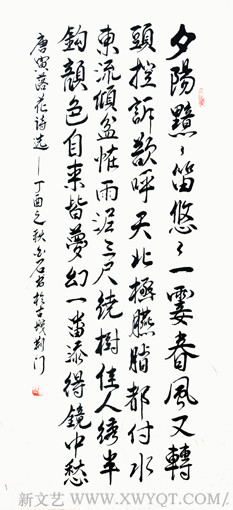 夕陽黯々笛悠々一霎春風又轉
頭控訴欲呼天北極臙脂都付水
東流傾盆怪雨泥三尺繞樹佳人綉半
鈎顏色自来皆夢幻一番添得鏡中愁
唐寅落花诗选—丁酉之秋
新文艺 WWW.XWYQT.COM/